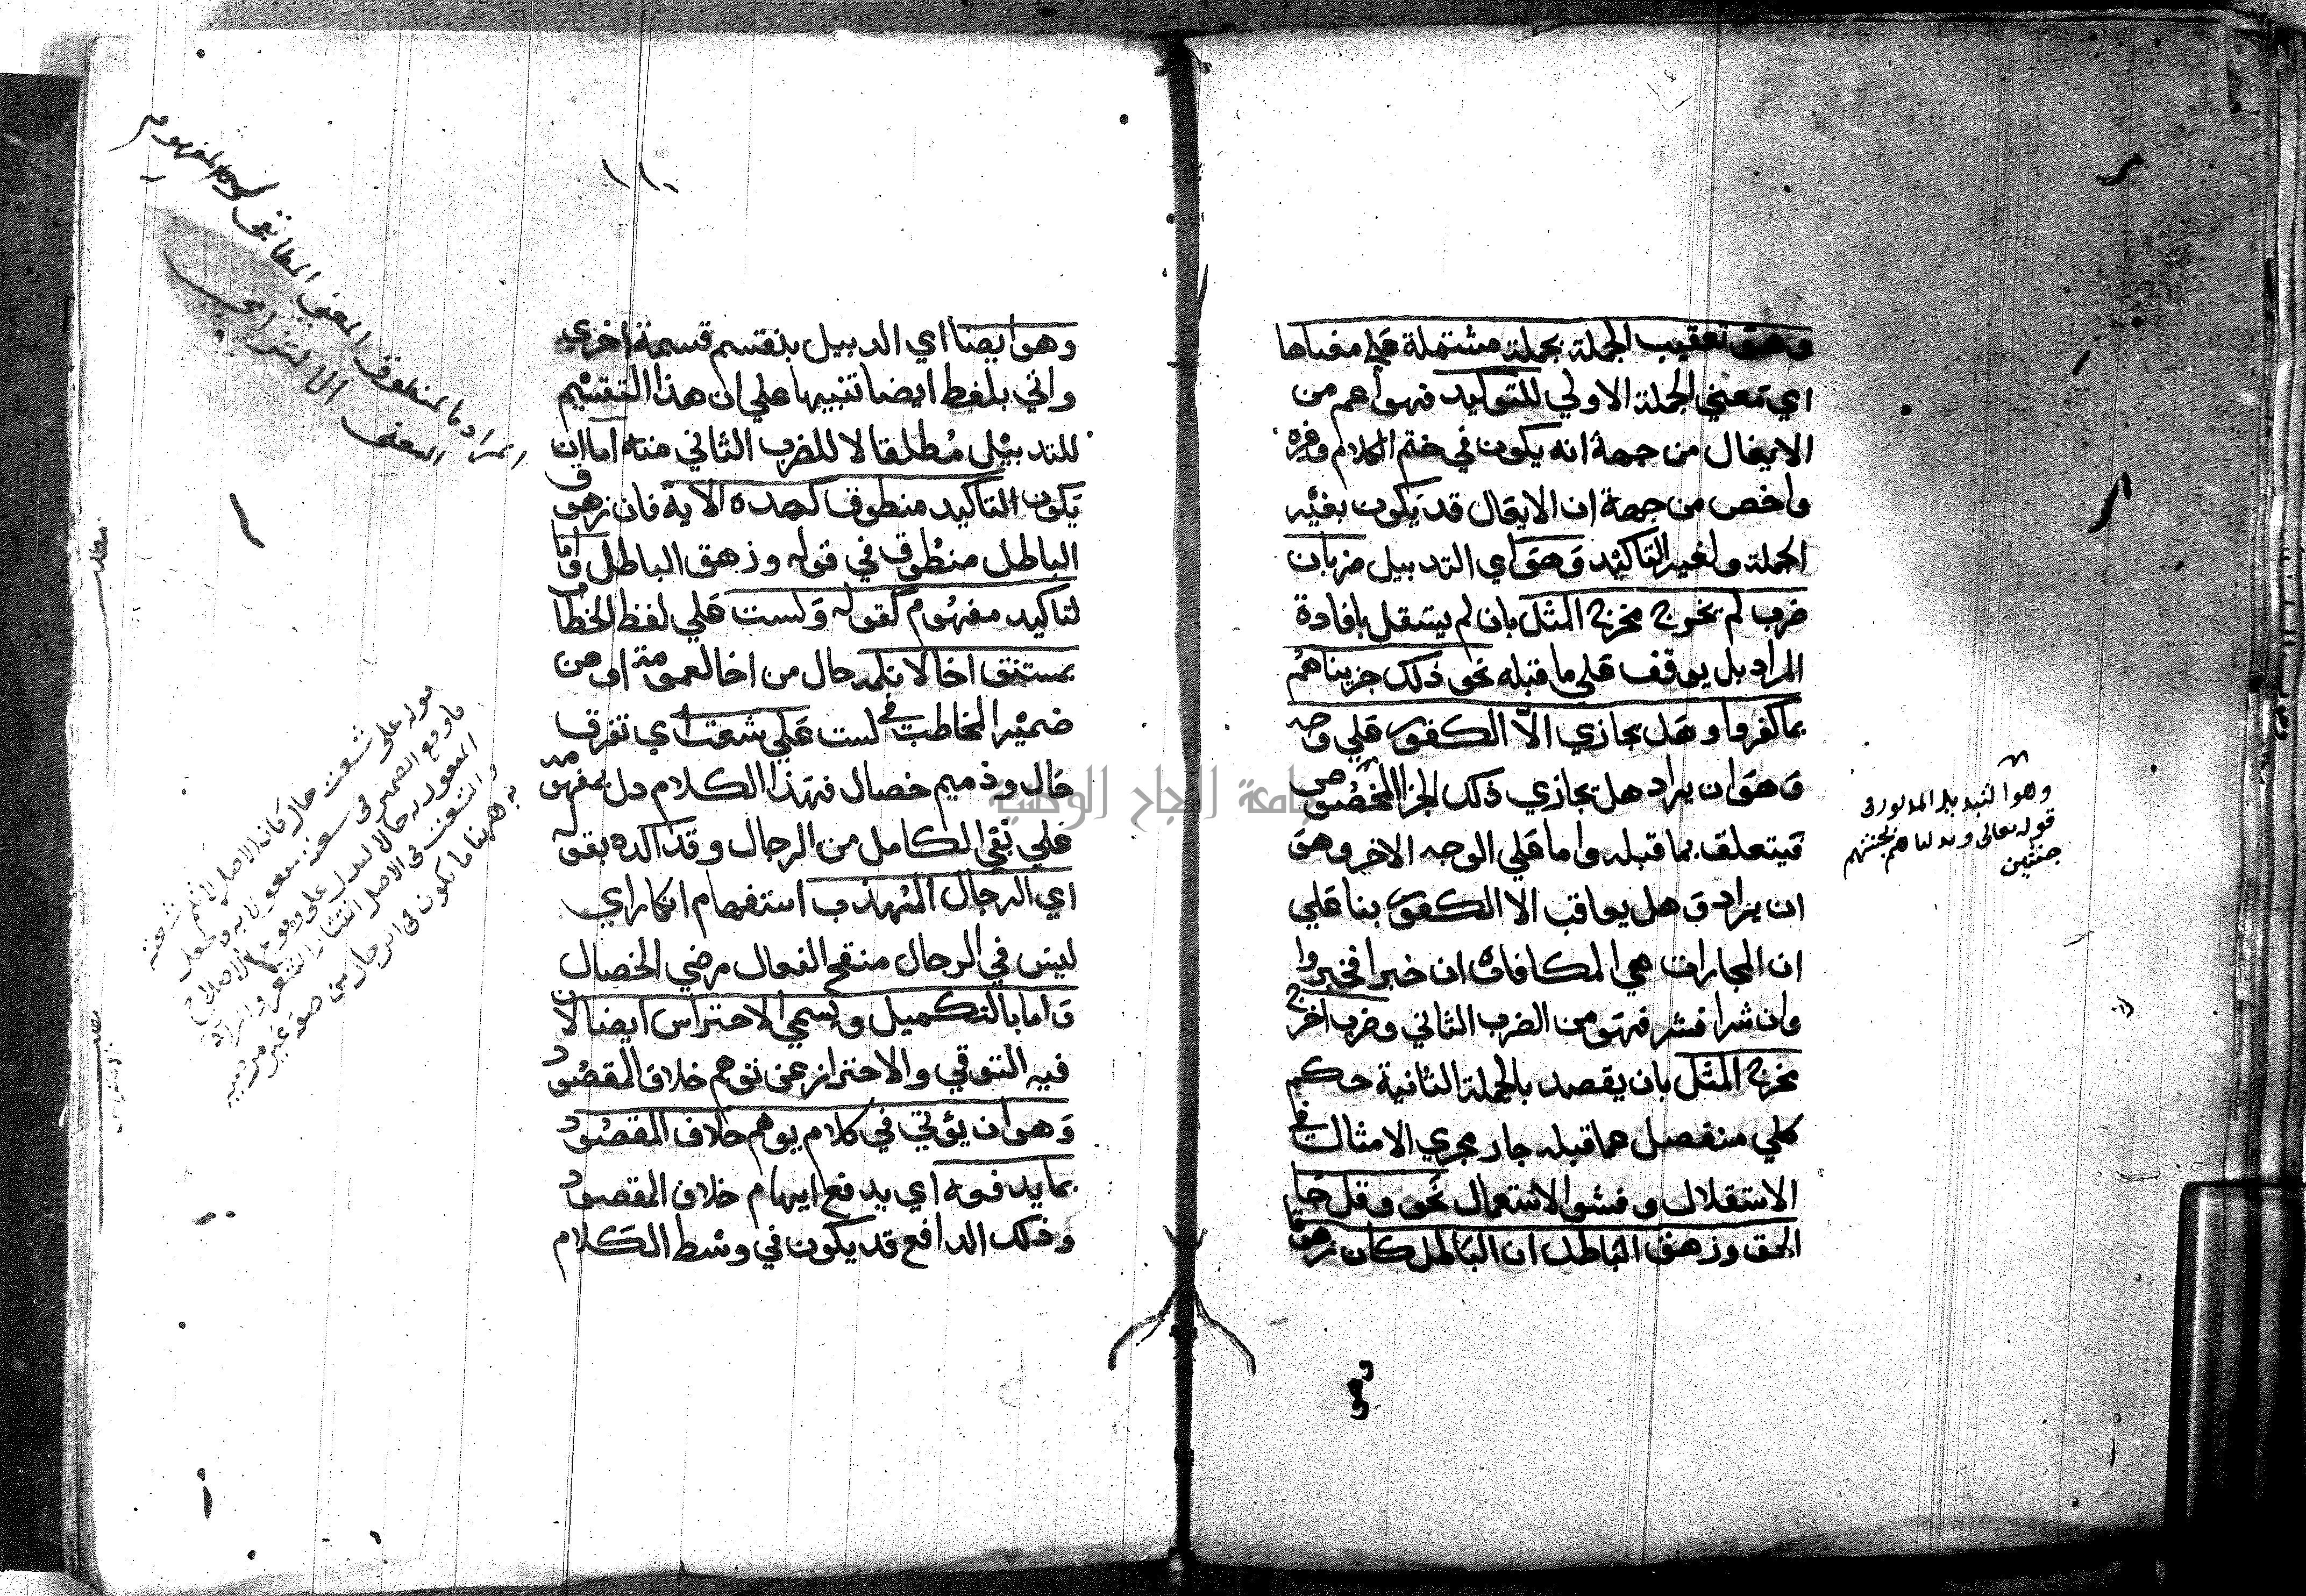 وهو تعقيب الجملة بجملة مشتملة علي معناها
اي معني الجملة الاولي للتوكيد فهو اعم من
الايغال من جهة انه يكون في ختم الكلام وغيره
واخص من جهة ان الايغال قد يكون بغير
الجملة ولغير التاكيد وهو اي التدبيل ضربان
ضرب لم يخرج مخرج المثل بان لم يستقل بافادة
المراد بل يوقف علي ما قبله نحو ذلك جزيناهم
بما كفروا وهل يجازي الا الكفور علي وجه
وهو ان يراد هل يجازي ذلك الجزا المخصوص
فيتعلق بما قبله واما علي الوجه الاخر وهو
ان يراد وهل يعاقب الا الكفور بنا علي
ان المجارات هي المكافاة ان خيرا فخيرا
وان شرا فشر فهو من الضرب الثاني وضرب اخرج
مخرج المثل بان يقصد بالجملة الثانية حكم
كلي منفصل عما قبله جار مجري الامثال في
الاستقلال وفشو الاستعمال نحو وقل جا
الحق وزهق الباطل ان الباطل كان زهوقا
وهو التبديل المذكور في
قوله تعالى وبدلناهم بجنتيهم
جنتين
١١٠
وهو ايضا اي الدبيل ينقسم قسمة اخري
واتي بلفظ ايضا تنبيها علي ان هذا التقسيم
للتدبيل مطلقا لا للضرب الثاني منه اما ان
يكون التاكيد منطوق كهده الاية فان زهوق
الباطل منطوق في قوله وزهق الباطل واما
لتاكيد مفهوم كقوله ولست علي لفظ الخطاب
بمستبق اخا لا تلمه حال من اخا لعمومه او من
ضمير المخاطب في لست علي شعث اي تفرق
حال وذميم خصال فهذا الكلام دل بمفهومه
علي نفي الكامل من الرجال وقد اكده بقوله
اي الرجال المهذب استفهام انكار اي
ليس في الرجال منقح الفعال مرضي الخصال
واما بالتكميل ويسمي الاحتراس ايضا لان
فيه التوقي والاحتراز عن توهم خلاف المقصود
وهو ان يؤتي في كلام يوهم خلاف المقصود
بما يدفعه اي يدفع ايهام خلاف المقصود
وذلك الدافع قد يكون في وسط الكلام
المراد بالمنطوق المعنى المطابقي وبالمفهوم
المعنى الالتزامي
قوله على شعث حال كان الاصل لا تلم شعثه
مطلب
مطلب